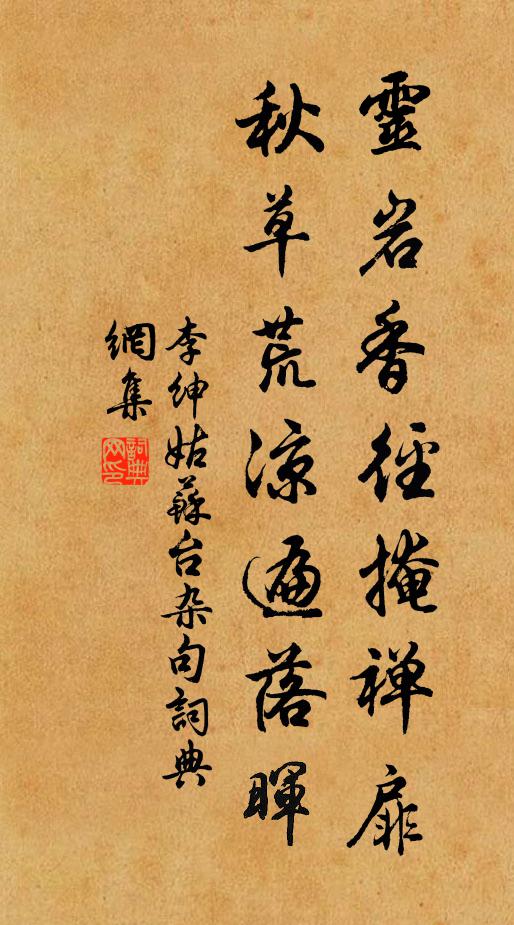 靈岩香徑掩禅扉
秋草荒凉遍落暉
李紳姑蘇台杂句詞典
網集
詞典
网印